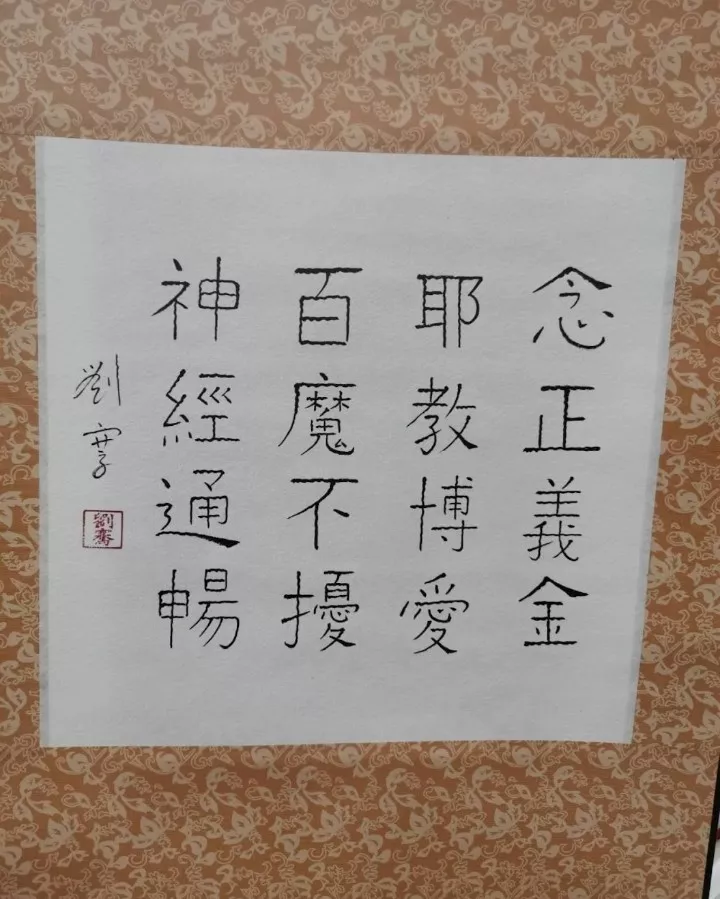 念正義金
耶教博愛
百魔不擾
神經通暢
劉騫
劉騫